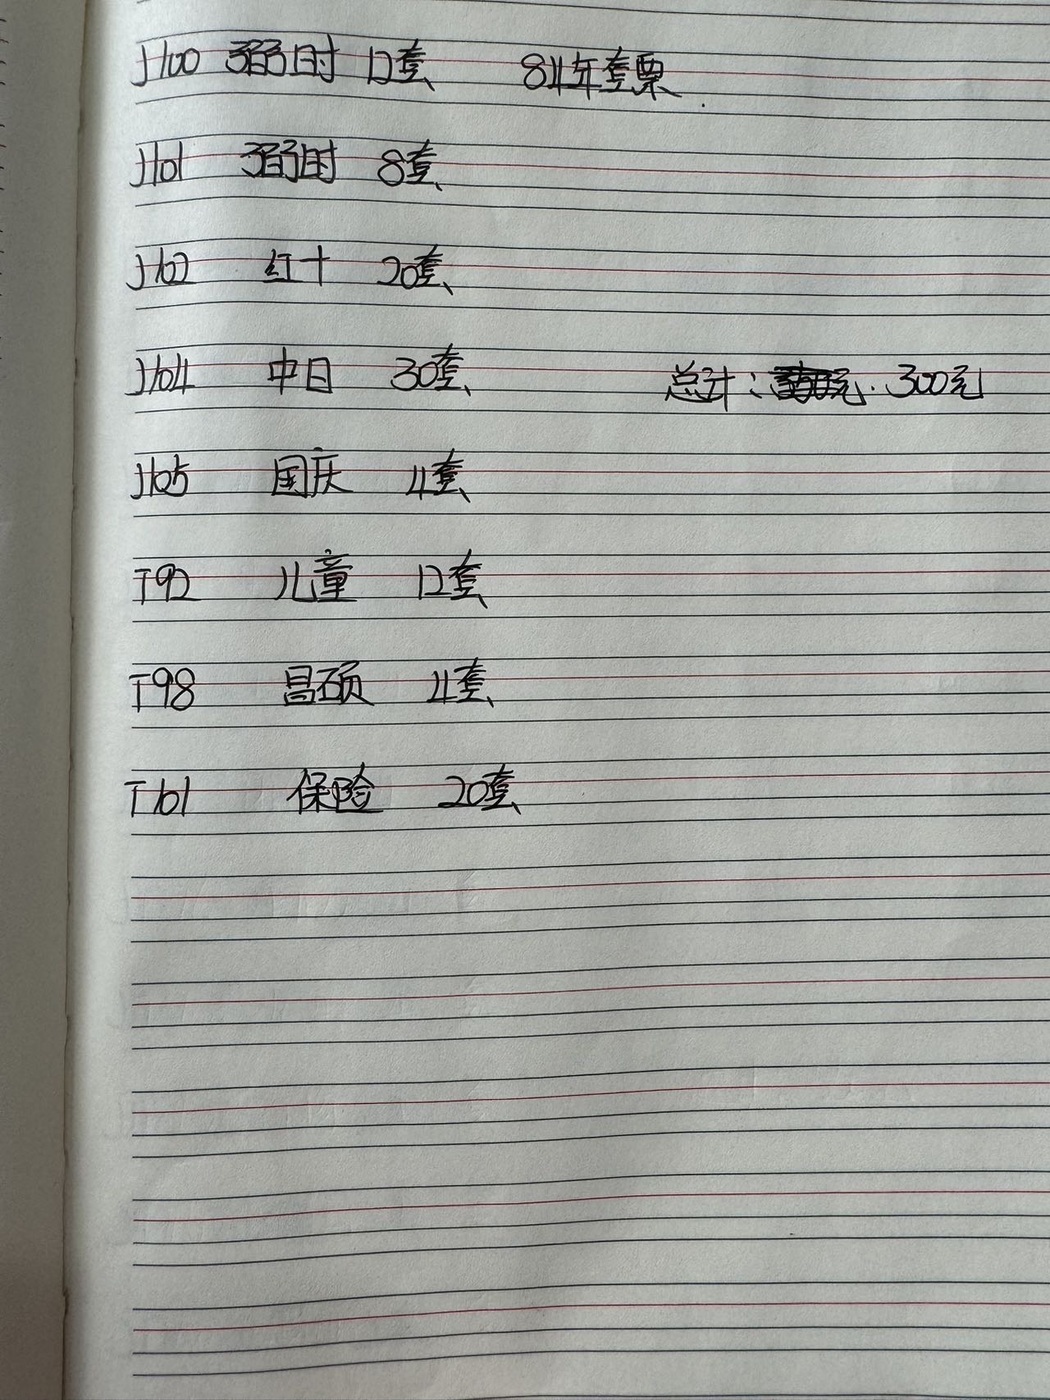 J100 弼时 12套 84年套票
J101 弼时 8套
J102 红十 20套
J104 中日 30套 总计： 300元
J105 国庆 4套
T92 儿童 12套
T98 昌硕 4套
T101 保险 20套